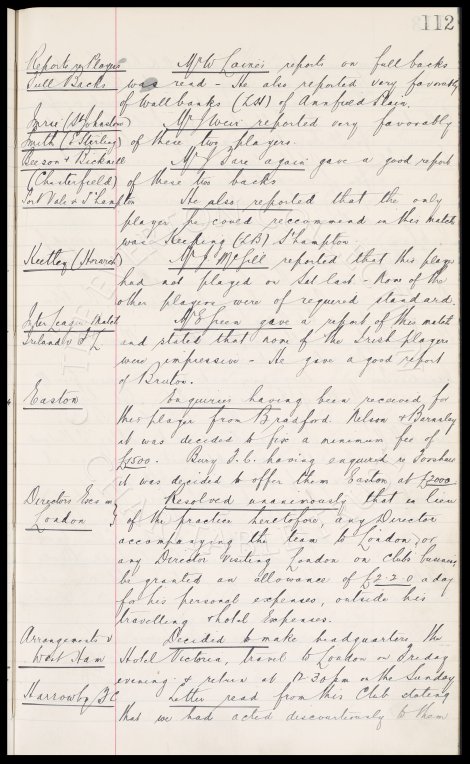 112
Reports re Players Mr W Caines reports on full backs
Full Backs was read - He also reported very favorably
of Wallbanks (LH) of Annfield Plain.
Imrie (St Johnstone) Mr J Weir reported very favorably
Smith (E Stirling) of these two players.
Beeson & Bicknell Mr J Dare again gave a good report
(Chesterfield) of these two backs
Port Vale v S'hampton He also reported that the only
player he could reccommend in this match
was Keeping (LB) S'hampton
Keetley (Horwich) Mr J McGill reported that this player
had not played on Sat last - None of the
other players were of required standard.
Inter League Match Mr E Green gave a report of this match
Ireland v F L and stated that none of the Irish players
were impressive - He gave a good report
of Bruton.
Easton Enquiries having been received for
this player from Bradford. Nelson & Barnsley
it was decided to fix a minimum fee of
£1500. Bury F.C. having enquired re
it was decided to offer them Easton at £2000
Directors Exes in Resolved unanimously that in lieu
London of the practice heretofore, any Director
accompanying the team to London or
any Director visiting London on club business
be granted an allowance of £2-2-0 a day
for his personal expenses, outside his
travelling & hotel Expenses.
Arrangements v Decided to make headquarters, the
West Ham Hotel Victoria, travel to London on Friday
evening & return at 12-30 pm on the Sunday
Harrowby F.C. Letter read from this Club stating
that we had acted discourteously to them